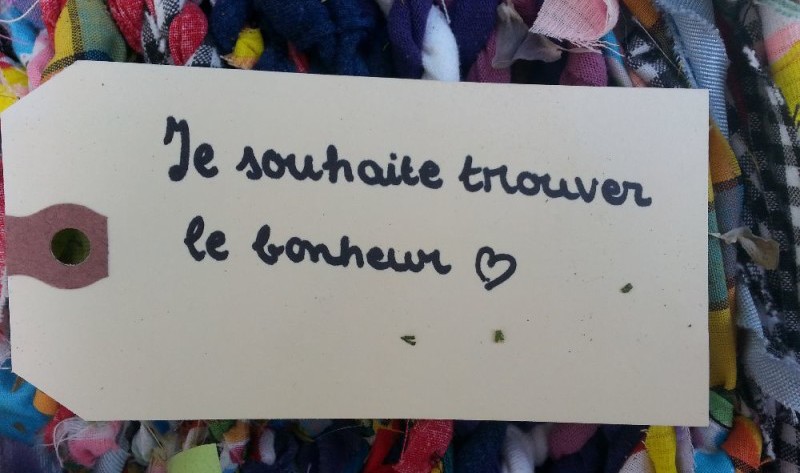 Je souhaite trouver
le bonheur ♡